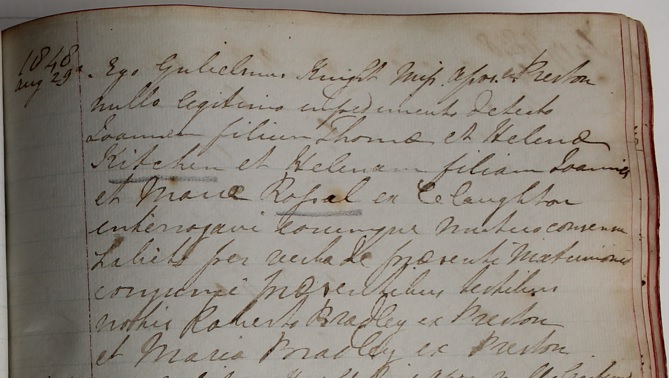 1848
Aug 29
Ego Gulielmus Knight Mis. Apos. ex Preston
nullo legitimo impedimento detecto
Joannem filium Thomæ et Helenæ
Kitchen et Helenam filiam Joannis
et Mariæ Rofsal ex Claughton
interrogavi eorumque mutuo consensu
habito per verba de præsenti Matrimonio
conjunxi præsentibus testibus
notis Roberto Bradley ex Preston
et Maria Bradley ex Preston